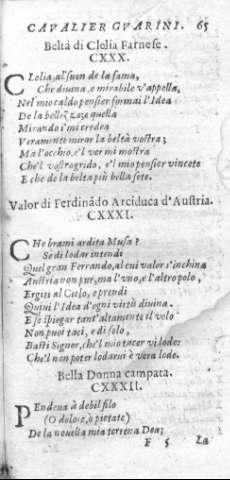 CAVALIER GVARINI. 65
Beltà di Clelia Farnese.
CXXX.
CLelia, al suon de la fama,
Che diuina, e mirabile v'appella,
Nel mio caldo pensier formai l'Idea
De la bellezza: e quella
Mirando i' mi credea
Veramente mirar la beltà vostra;
Ma l'occhio, e'l ver mi mostra
Che'l vostro grido, e'l mio pensier vincete
E che de la beltà più bella sete.
Valor di Ferdinãdo Arciduca d'Austria.
CXXXI.
CHe brami ardita Musa?
Se di lodar intendi
Quel gran Ferrando, al cui valor s'inchina
Austria non pur, ma l'vno, e l'altro polo,
Ergiti al Cielo, e prendi
Quiui l'Idea d'ogni virtù diuina.
E se spiegar tant'altamente il volo
Non puoi taci, e di solo,
Basti Signor, che'l mio tacer vi lode:
Che'l non poter lodarui è vera lode.
Bella Donna campata.
CXXXII.
PEndeua à debil filo
(O dolore, ò pietate)
De la nouella mia terrena Dea;
F 5 La